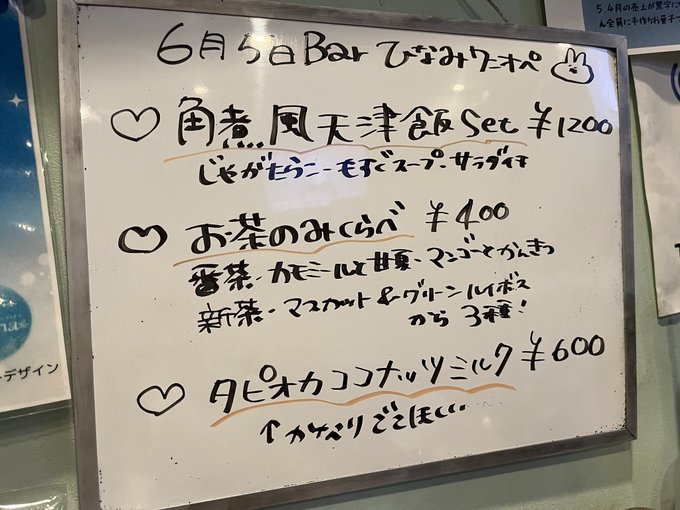 6月5日Bar ひなみワンオペ
♡ 角煮風天津飯Set ¥1200
じゃがたらこ・もずくスープ・サラダ付
♡ お茶のみくらべ ¥400
番茶・カモミールと甘夏・マンゴーとかんきつ
新茶・マスカット&グリーンルイボス
から3種!
♡ タピオカココナッツミルク ¥600
↑かき
5.4月の売上が黒字に
ん全員に手作りお菓子
デザイン